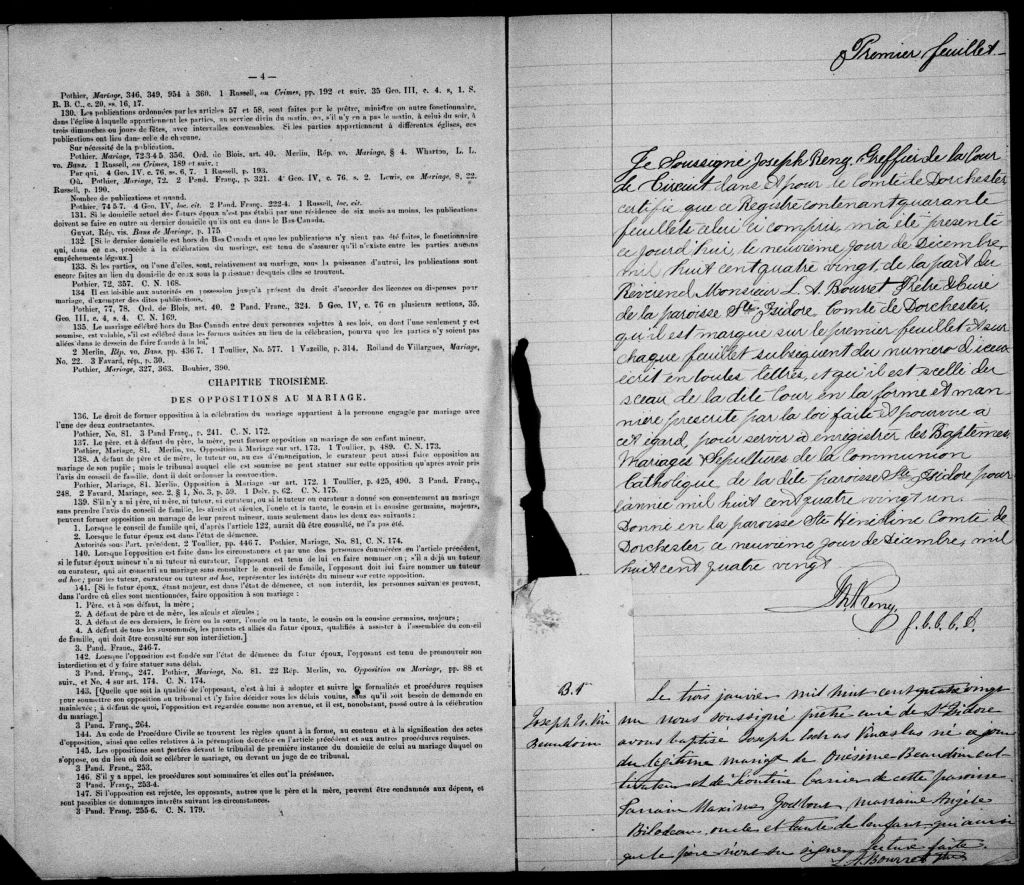 — 4 —
Pothier, Mariage, 346, 349, 954 à 360. 1 Russell, on Crimes, pp. 192 et suiv. 35 Geo. III, c. 4. s, 1. S.
R. B. C., c. 20, ss. 16, 17.
130. Les publications ordonnées par les articles 57 et 58, sont faites par le prêtre, ministre ou autre fonctionnaire,
dans l'église à laquelle appartiennent les parties, au service divin du matin, ou, s'il n'y en a pas le matin, à celui du soir, à
trois dimanches ou jours de fêtes, avec intervalles convenables. Si les parties appartiennent à différentes églises, ces
publications ont lieu dans celle de chacune.
Sur nécessité de la publication.
Pothier, Mariage, 72-3-4-5. 356. Ord. de Blois, art. 40. Merlin, Rép. vo. Mariage, § 4. Wharton, L. L.
vo. Bans. 1 Russell, on Crimes, 189 et suiv. :
Par qui. 4 Geo. IV, c. 76. ss. 6, 7. 1 Russell, p. 193.
Où. Pothier, Mariage, 72. 2 Pand. Franç., p. 321. 4 Geo. IV, c. 76. s. 2. Lewis, on Mariage, 8, 22.
Russell, p. 190.
Nombre de publications et quand.
Pothier, 74-5-7. 4 Geo. IV, loc. cit. 2 Pand. Franç., 222-4. 1 Russell, loc. cit.
131. Si le domicile actuel des futurs époux n'est pas établi par une résidence de six mois au moins, les publications
doivent se faire en outre au dernier domicile qu'ils ont eu dans le Bas Canada.
Guyot, Rép. vis. Bans de Mariage, p. 175.
132. [Si le dernier domicile est hors du Bas Canada et que les publications n'y aient pas été faites, le fonctionnaire
qui, dans ce cas, procède à la célébration du mariage, est tenu de s'assurer qu'il n'existe entre les parties aucuns
empêchements légaux.]
133. Si les parties, ou l'une d'elles, sont, relativement au mariage, sous la puissance d'autrui, les publications sont
encore faites au lieu du domicile de ceux sous la puissance desquels elles se trouvent.
Pothier, 72, 357. C. N. 168.
134 Il est loisible aux autorités en possession jusqu'à présent du droit d'accorder des licences ou dispenses pour
mariage, d'exempter des dites publications.
Pothier, 77, 78. Ord. de Blois, art. 40. 2 Pand. Franc., 324. 5 Geo IV, c. 76 en plusieurs sections, 35.
Geo. III, c. 4, s. 4. C. N. 169.
135. Le mariage célébré hors du Bas Canada entre deux personnes sujettes à ses lois, ou dont l'une seulement y est
soumise, est valable, s'il est célébré dans les formes usitées au lieu de la célébration, pourvu que les parties n'y soient pas
allées dans le dessein de faire fraude à la loi.
2 Merlin, Rép. vo. Bans, pp. 436-7. 1 Toullier, No. 577. 1 Vazeille, p. 314. Rolland de Villargues, Mariage,
No. 22. 3 Favard, rép., p. 30.
Pothier, Mariage, 327, 363. Bouhier, 390.
CHAPITRE TROISIÈME.
DES OPPOSITIONS AU MARIAGE.
136. Le droit de former opposition à la célébration du mariage appartient à la personne engagée par mariage avec
l'une des deux contractantes.
Pothier, No. 81. 3 Pand Franç., p. 241. C. N. 172.
137. Le père, et à défaut du père, la mère, peut former opposition au mariage de son enfant mineur.
Pothier, Mariage, 81. Merlin, vo. Opposition à Mariage sur art. 173. 1 Toullier, p. 489. C. N. 173.
138. A défaut de père et de mère, le tuteur ou, au cas d'émancipation, le curateur peut aussi faire opposition au
mariage de son pupille ; mais le tribunal auquel elle est soumise ne peut statuer sur cette opposition qu'après avoir pris
l'avis du conseil de famille, dont il doit ordonner la convocation.
Pothier, Mariage, 81. Merlin, Opposition à Mariage sur art. 172. 1 Toullier, p. 425, 490. 3 Pand. Franç.,
248. 2 Favard, Mariage, sec. 2, § 1, No. 3, p. 59. 1 Delv. p. 62. C. N. 175.
139. S'il n'y a ni père, ni mère, ni tuteur, ni curateur, ou si le tuteur ou curateur a donné son consentement au mariage
sans prendre l'avis du conseil de famille, les aïeuls et aïeules, l'oncle et la tante, le cousin et la cousine germains, majeurs,
peuvent former opposition au mariage de leur parent mineur, mais seulement dans les deux cas suivants :
1. Lorsque le conseil de famille qui, d'après l'article 122, aurait dû être consulté, ne l'a pas été.
2. Lorsque le futur époux est dans l'état de démence.
Autorités sous l'art. précédent. 2 Toullier, pp. 446-7. Pothier, Mariage, No. 81, C. N. 174.
140. Lorsque l'opposition est faite dans les circonstances et par une des personnes énumérées en l'article précédent,
si le futur époux mineur n'a ni tuteur ni curateur, l'opposant est tenu de lui en faire nommer un ; s'il a déjà un tuteur
ou curateur, qui ait consenti au mariage sans consulter le conseil de famille, l'opposant doit lui faire nommer un tuteur
ad hoc ; pour les tuteur, curateur ou tuteur ad hoc, représenter les intérêts du mineur sur cette opposition.
141. [Si le futur époux, étant majeur, est dans l'état de démence, et non interdit, les personnes suivantes peuvent,
dans l'ordre où elles sont mentionnées, faire opposition à son mariage :
1. Père, et à son défaut, la mère ;
2. A défaut de père et de mère, les aïeuls et aïeules ;
3. A défaut de ces derniers, le frère ou la sœur, l'oncle ou la tante, le cousin ou la cousine germains, majeurs ;
4. A défaut de tous les susnommés, les parents et alliés du futur époux, qualifiés à assister à l'assemblée du conseil
de famille, qui doit être consulté sur son interdiction.]
3. Pand. Franç., 246-7.
142. Lorsque l'opposition est fondée sur l'état de démence du futur époux, l'opposant est tenu de promouvoir son
interdiction et d'y faire statuer sans délai.
3 Pand. Franç. 247. Pothier, Mariage, No. 81. 22 Rép. Merlin, vo. Opposition au Mariage, pp. 88 et
suiv., et No. 4 sur art. 174. C. N. 174.
143. [Quelle que soit la qualité de l'opposant, c'est à lui à adopter et suivre les formalités et procédures requises
pour soumettre son opposition au tribunal et l'y faire décider sous les délais voulus, sans qu'il soit besoin de demande en
mainlevée ; à défaut de quoi, l'opposition est regardée comme non avenue, et il est, nonobstant, passé outre à la célébration
du mariage.]
3 Pand. Franç., 264.
144. Au code de Procédure Civile se trouvent les règles quant à la forme, au contenu et à la signification des actes
d'opposition, ainsi que celles relatives à la péremption décrétée en l'article précédent et aux autres procédures requises.
145. Les oppositions sont portées devant le tribunal de première instance du domicile de celui au mariage duquel on
s'oppose, ou du lieu où doit se célébrer le mariage, ou devant un juge de ce tribunal.
3 Pand. Franc., 253.
146. S'il y a appel, les procédures sont sommaires et elles ont la préséance.
3 Pand. Franç., 253-4.
147. Si l'opposition est rejetée, les opposants, autres que le père et la mère, peuvent être condamnés aux dépens, et
sont passibles de dommages intérêts suivant les circonstances.
3 Pand. Franç. 255-6. C. N. 179.
Premier feuillet.
Je Soussigné Joseph Reny, Greffier de la Cour
de Circuit dans et pour le Comté de Dorchester
certifie que ce Registre contenant quarante
feuillets celui ci compris, m'a été présenté
ce jourd'hui, le neuvième jour de Décembre,
mil huit cent quatre vingt, de la part du
Révérend Monsieur L. A. Bourret Prêtre Curé
de la paroisse Ste Isidore, Comté de Dorchester,
qu'il est marqué sur le premier feuillet et sur
chaque feuillet subsequent du numero d'iceux
ecrit en toutes lettres, et qu'il est scellé du
sceau de la dite Cour en la forme et man
ière prescrite par la loi faite et pourvue à
cet égard, pour servir à enregistrer les Baptemes
Mariages & Sépultures de la Communion
Catholique de la dite paroisse Ste Isidore pour
l'année mil huit cent quatre vingt un
Donné en la paroisse Ste Hénédine Comté de
Dorchester, ce neuvième jour de Décembre, mil
huit cent quatre vingt
Reny
B. 1
Joseph
Beaudoin
Le trois janvier mil huit cent quatre vingt
un nous soussigné prêtre curé de St Isidore
avons baptisé Joseph Esdras né ce jour
du légitime mariage de Onésime Beaudoin cul
tivateur et de Carrier de cette paroisse
Parrain Maxime Godbout marraine Angèle
Bilodeau oncle et tante de l'enfant qui ainsi
que le père n'ont su signer. Lecture faite.
L. A. Bourret Ptre